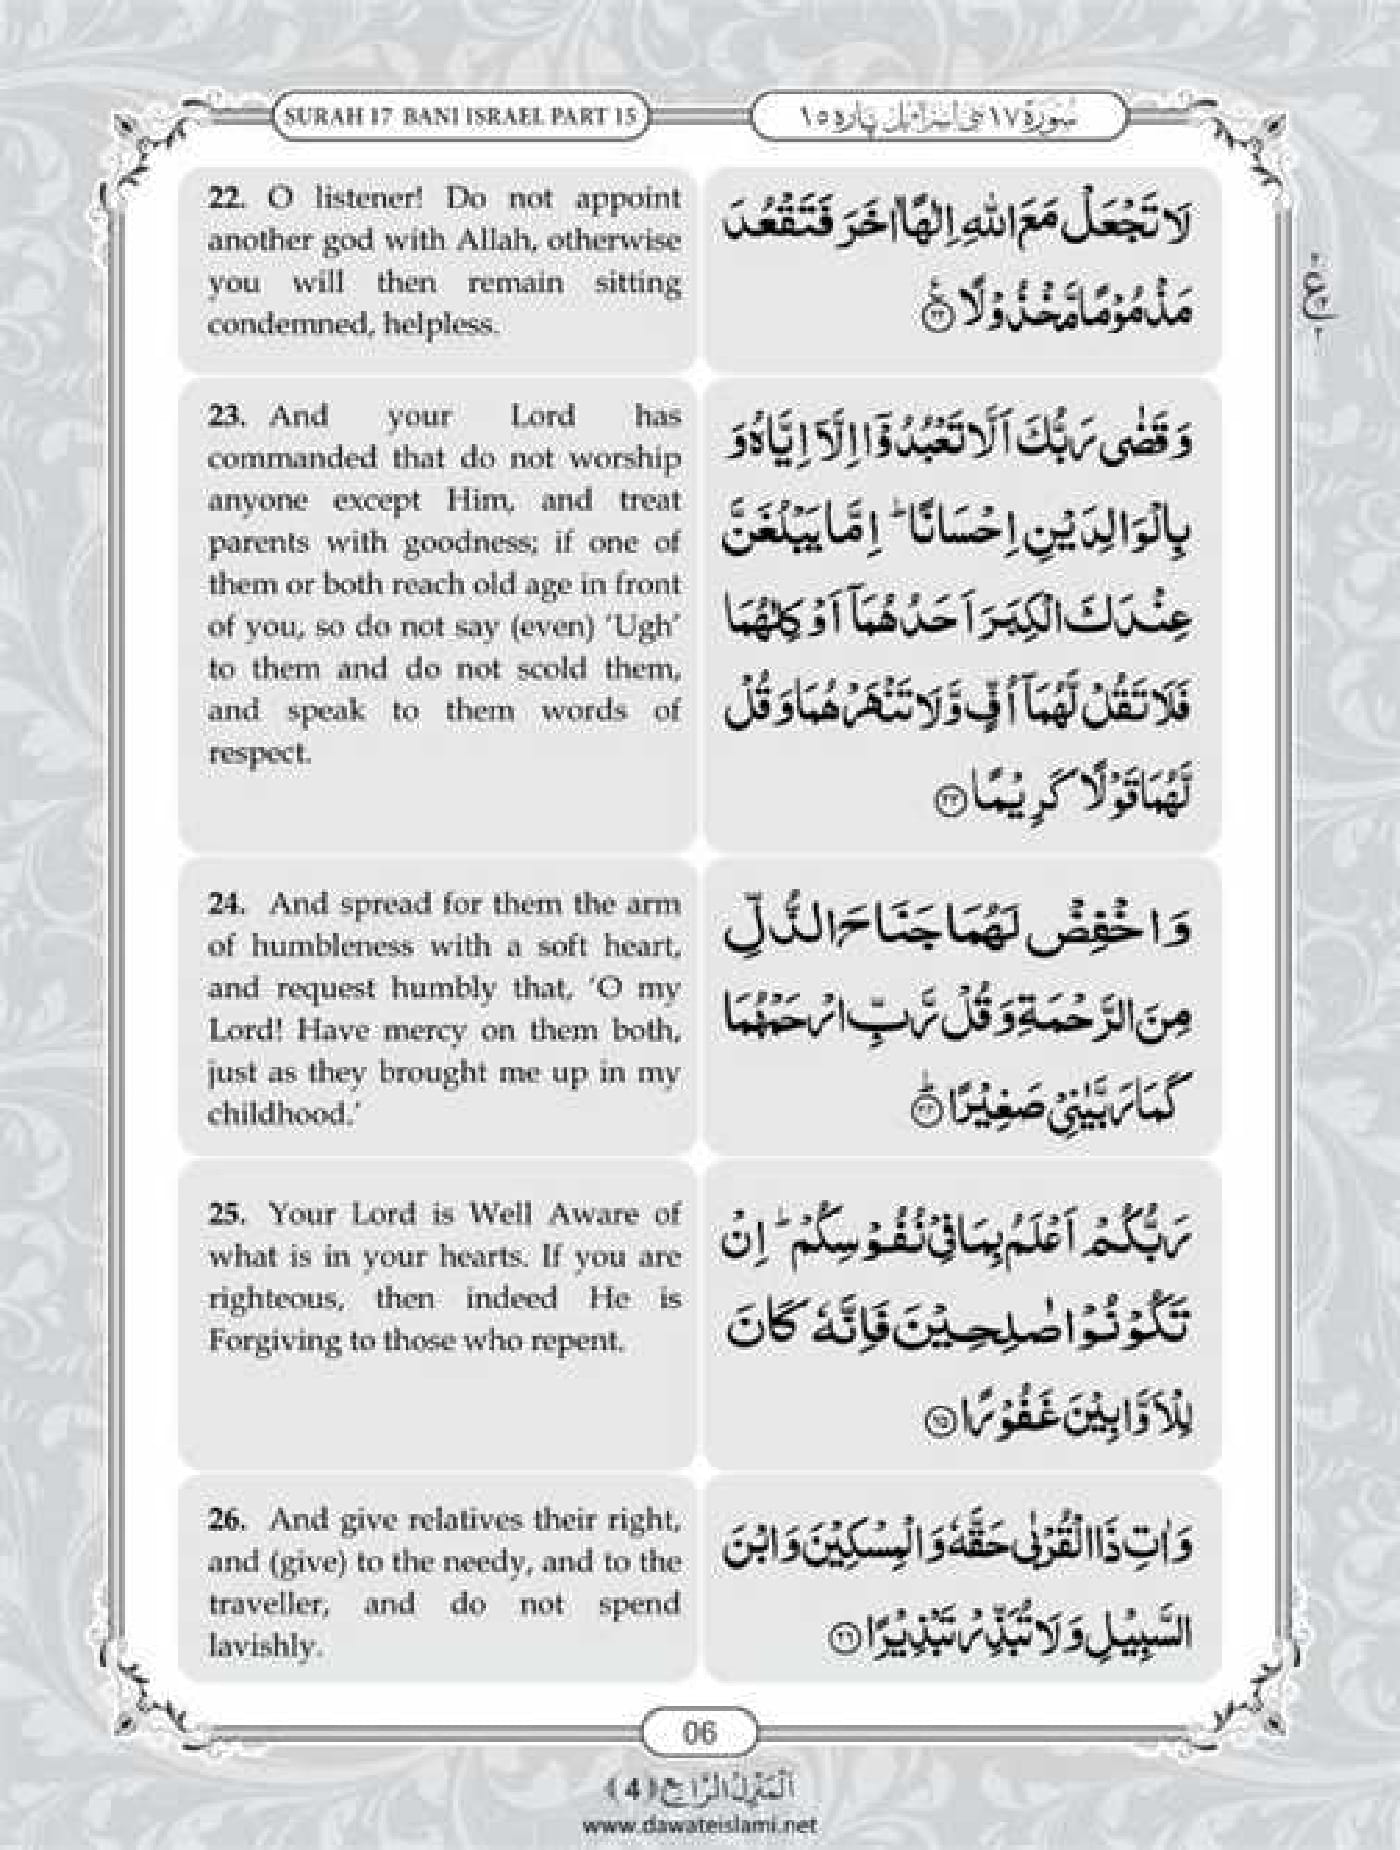 SURAH 17 BANI ISRAEL PART 15
سُورَة ١٧ بنی اسرائیل پاره ١٥
22. O listener! Do not appoint
another god with Allah, otherwise
you will then remain sitting
condemned, helpless.
لَا تَجْعَلْ مَعَ اللّٰهِ اِلٰهًا اٰخَرَ فَتَقْعُدَ
مَذْمُوْمًا مَّخْذُوْلًا ۟۠ ﴿٢٢﴾
ع
٢
23. And your Lord has
commanded that do not worship
anyone except Him, and treat
parents with goodness; if one of
them or both reach old age in front
of you, so do not say (even) ‘Ugh’
to them and do not scold them,
and speak to them words of
respect.
وَ قَضٰى رَبُّكَ اَلَّا تَعْبُدُوْۤا اِلَّاۤ اِیَّاهُ وَ
بِالْوَالِدَیْنِ اِحْسَانًا ؕ اِمَّا یَبْلُغَنَّ
عِنْدَكَ الْكِبَرَ اَحَدُهُمَاۤ اَوْ كِلٰهُمَا
فَلَا تَقُلْ لَّهُمَاۤ اُفٍّ وَّ لَا تَنْهَرْهُمَا وَ قُلْ
لَّهُمَا قَوْلًا كَرِیْمًا ﴿٢٣﴾
24. And spread for them the arm
of humbleness with a soft heart,
and request humbly that, ‘O my
Lord! Have mercy on them both,
just as they brought me up in my
childhood.’
وَ اخْفِضْ لَهُمَا جَنَاحَ الذُّلِّ
مِنَ الرَّحْمَةِ وَ قُلْ رَّبِّ ارْحَمْهُمَا
كَمَا رَبَّیٰنِیْ صَغِیْرًا ؕ﴿٢٤﴾
25. Your Lord is Well Aware of
what is in your hearts. If you are
righteous, then indeed He is
Forgiving to those who repent.
رَبُّكُمْ اَعْلَمُ بِمَا فِیْ نُفُوْسِكُمْ ؕ اِنْ
تَكُوْنُوْا صٰلِحِیْنَ فَاِنَّهٗ كَانَ
لِلْاَوَّابِیْنَ غَفُوْرًا ﴿٢٥﴾
26. And give relatives their right,
and (give) to the needy, and to the
traveller, and do not spend
lavishly.
وَ اٰتِ ذَا الْقُرْبٰى حَقَّهٗ وَ الْمِسْكِیْنَ وَ ابْنَ
السَّبِیْلِ وَ لَا تُبَذِّرْ تَبْذِیْرًا ﴿٢٦﴾
06
اَلْمَنْزِلُ الرَّابِع (4)
www.dawateislami.net